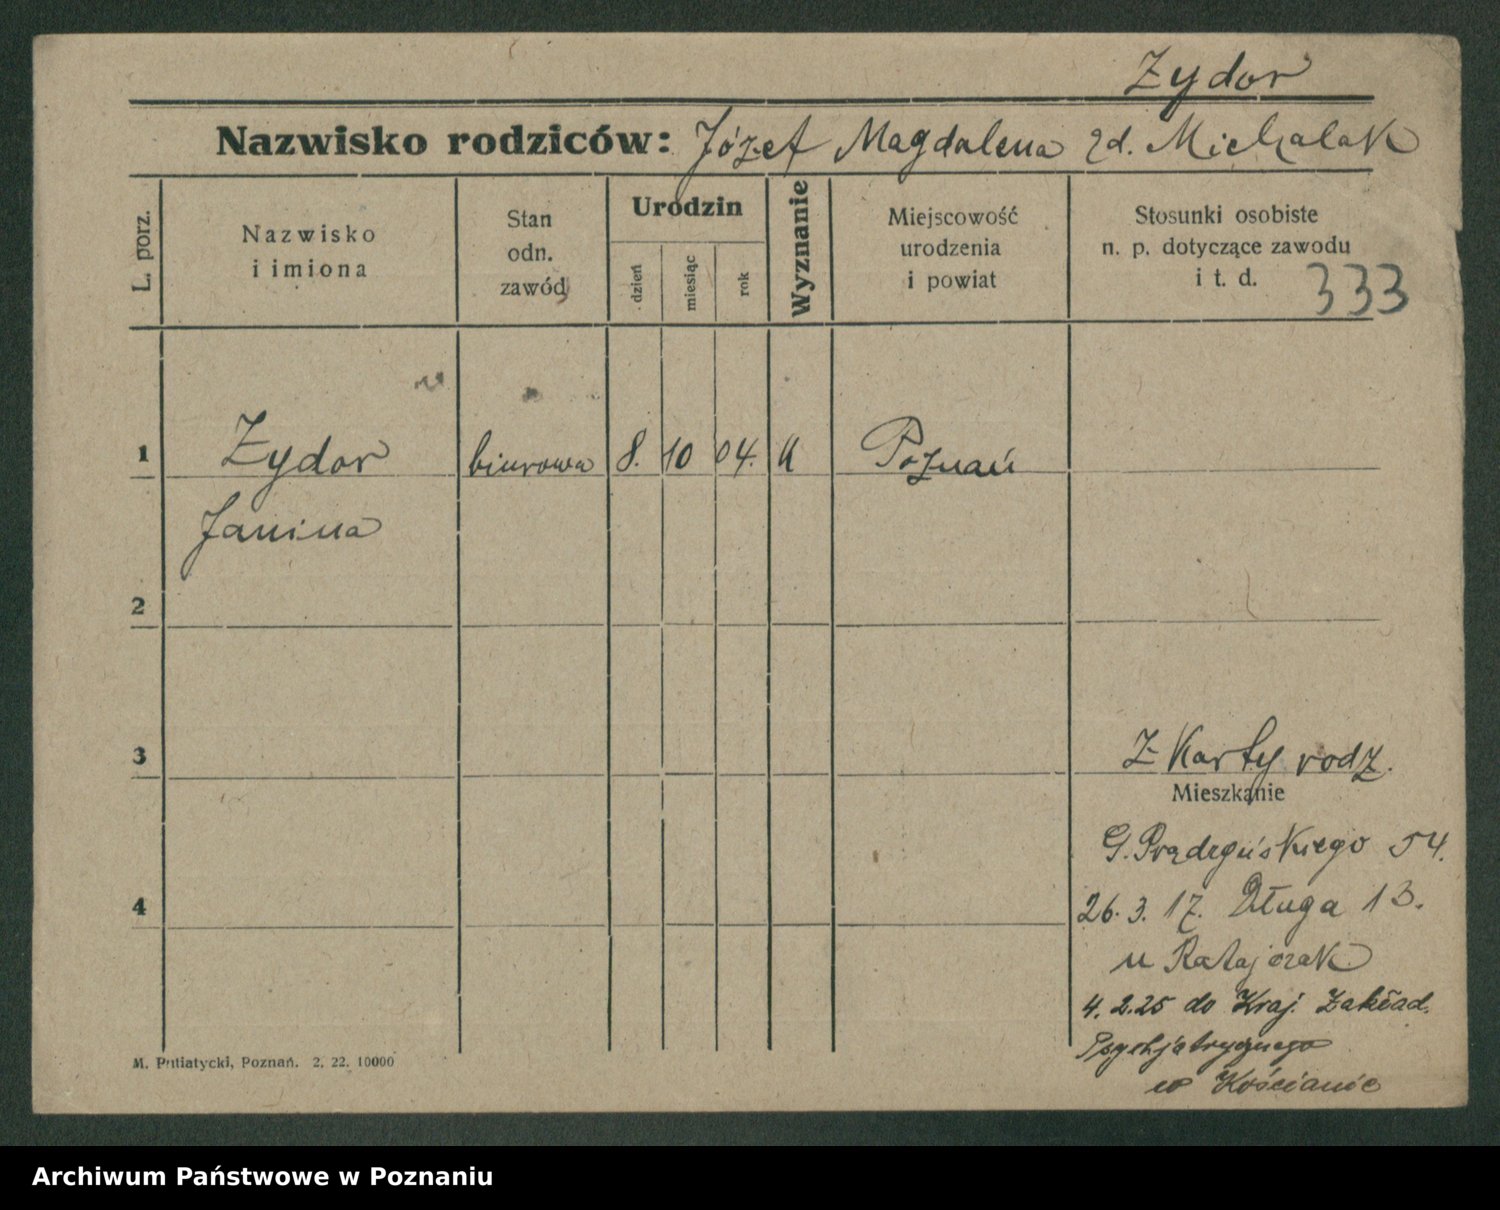 Zydor
Nazwisko rodziców: Józef Magdalena zd. Michalak
L. porz.
Nazwisko
i imiona
Stan
odn.
zawód
Urodzin
dzień
miesiąc
rok
Wyznanie
Miejscowość
urodzenia
i powiat
Stosunki osobiste
n. p. dotyczące zawodu
i t. d.
333
1 Zydor biurowa 8. 10 04. K Poznań
Janina
2
3
Z Karty rodz.
Mieszkanie
G. Prądzyńskiego 54.
4
26. 3. 17. Długa 13.
u Ratajczak
4. 2. 25 do Kraj. Zakład.
Psychjatrycznego
w Kościanie
M. Putiatycki, Poznań. 2. 22. 10000
Archiwum Państwowe w Poznaniu